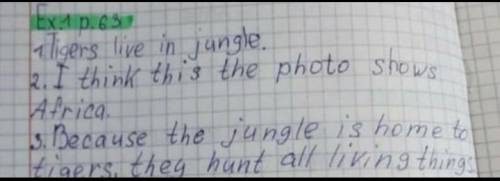 Ex.1 p.63
1.Tigers live in jungle.
2. I think this the photo shows
Africa.
3. Because the jungle is home to
tigers, they hunt all living things